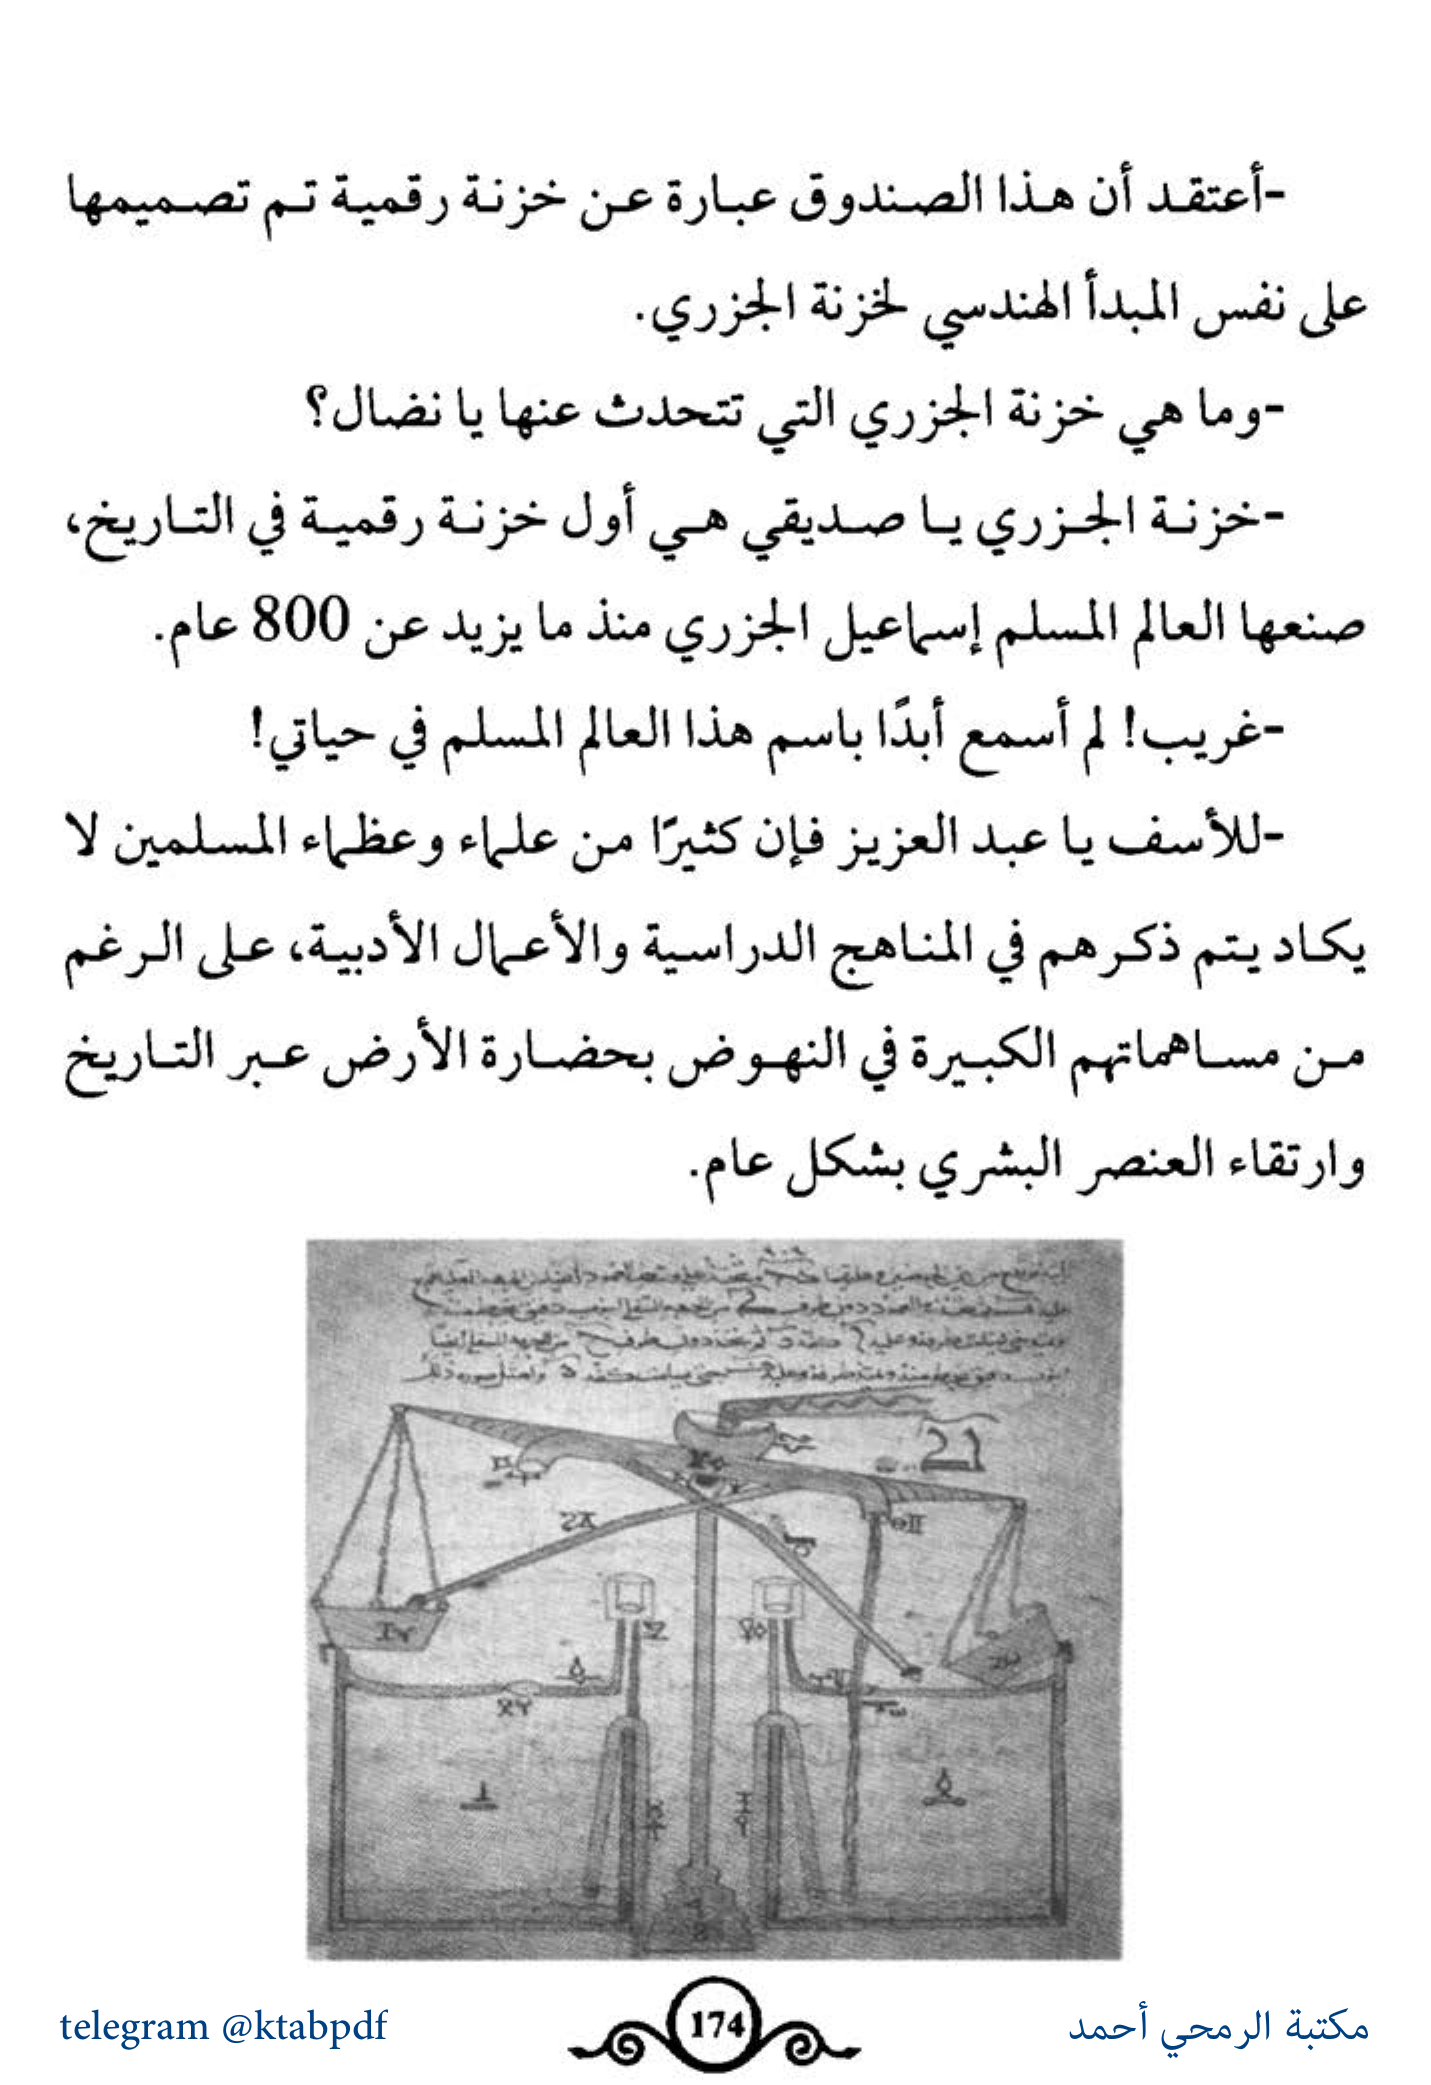 -أعتقد أن هذا الصندوق عبارة عن خزنة رقمية تم تصميمها
على نفس المبدأ الهندسي لخزنة الجزري.
-وما هي خزنة الجزري التي تتحدث عنها يا نضال؟
-خزنة الجزري يا صديقي هي أول خزنة رقمية في التاريخ،
صنعها العالم المسلم إسماعيل الجزري منذ ما يزيد عن 800 عام.
-غريب! لم أسمع أبدًا باسم هذا العالم المسلم في حياتي!
-للأسف يا عبد العزيز فإن كثيرًا من علماء وعظماء المسلمين لا
يكاد يتم ذكرهم في المناهج الدراسية والأعمال الأدبية، على الرغم
من مساهماتهم الكبيرة في النهوض بحضارة الأرض عبر التاريخ
وارتقاء العنصر البشري بشكل عام.
174
مكتبة الرمحي أحمد
telegram @ktabpdf